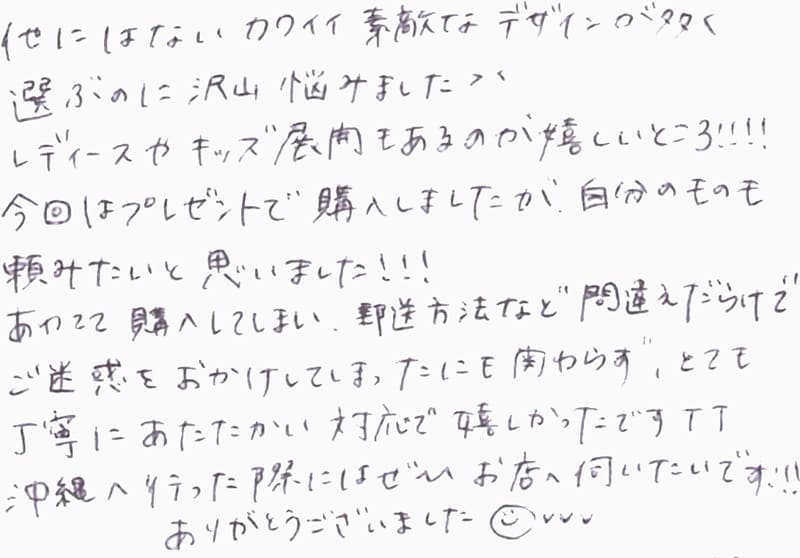 他にはない カワイイ 素敵な デザインが多く
選ぶのに 沢山 悩みました >＜
レディースや キッズ 展開もあるのが 嬉しいところ!!!!
今回はプレゼントで 購入しましたが、自分のものも
頼みたいと 思いました!!!
あわてて 購入してしまい、郵送方法など 間違えだらけで
ご迷惑を おかけしてしまったにも 関わらず、とても
丁寧に あたたかい 対応で 嬉しかったです TT
沖縄へ行った際にはぜひ お店へ 伺いたいです!!!
ありがとうございました ☺ ✓✓✓